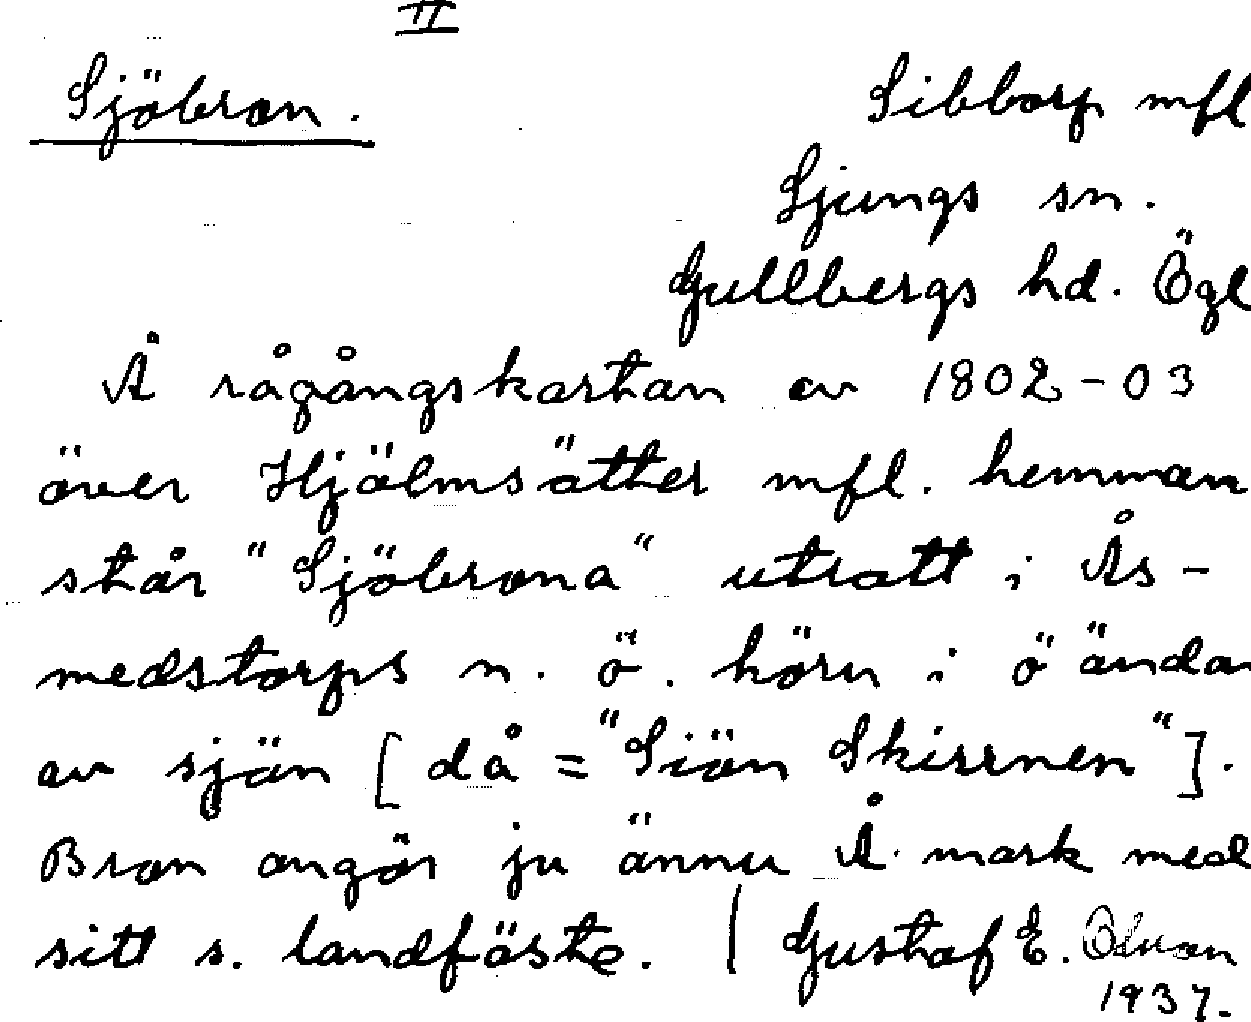 II
Sjöbron. Sibborp mfl
Ljungs sn.
Gullbergs hd. Ögl
Å rågångskartan av 1802-03
över Hjälmsätter mfl. hemman
står "Sjöbrona" utsatt i Ås-
medstorps n. ö. hörn i ö ändan
av sjön [då = "Siön Skirrnen"].
Bron angör ju ännu Å. mark med
sitt s. landfäste. | Gustaf E.
1937.